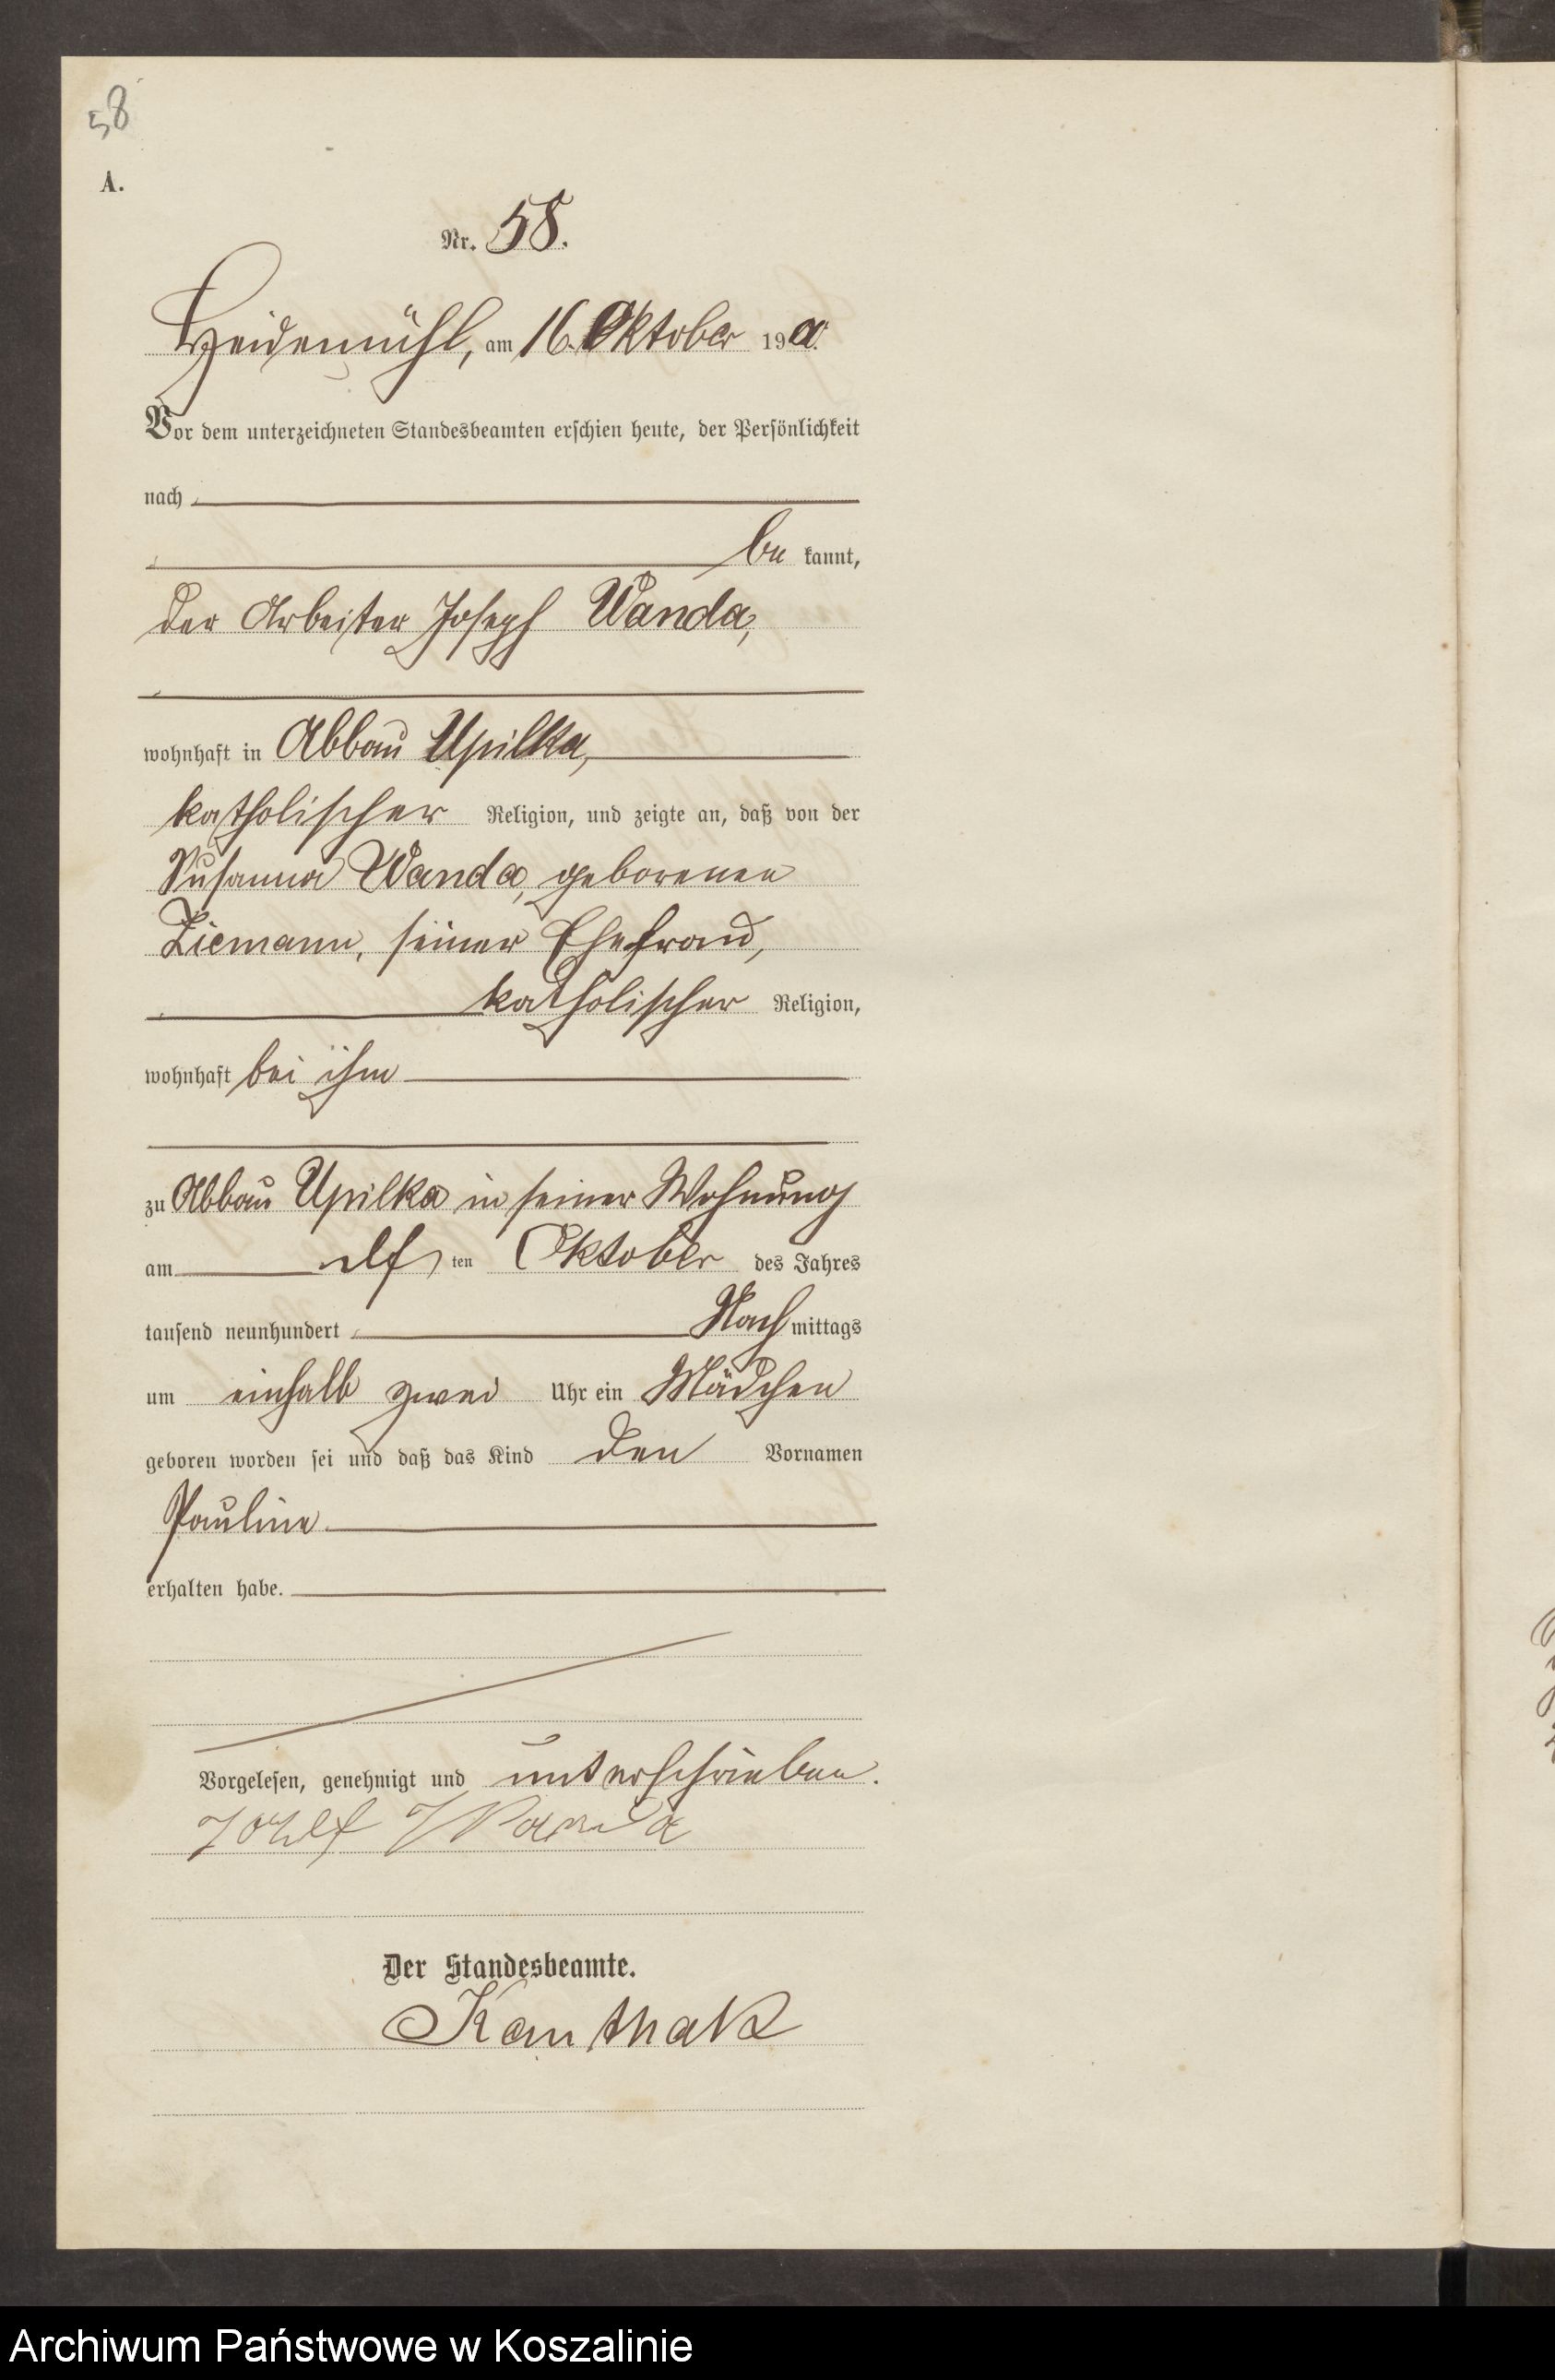 58
A.
Nr. 58.
Heidemühl, am 16. Oktober 190
Vor dem unterzeichneten Standesbeamten erschien heute, der Persönlichkeit
nach
be kannt,
der Arbeiter Joseph Wanda,
wohnhaft in Abbau Upilka,
katholischer Religion, und zeigte an, daß von der
Susanna Wanda, geborenen
Ziemann, seiner Ehefrau,
katholischer Religion,
wohnhaft bei ihm
zu Abbau Upilka in seiner Wohnung
am elf ten Oktober des Jahres
tausend neunhundert Nach mittags
um einhalb zwei Uhr ein Mädchen
geboren worden sei und daß das Kind den Vornamen
Pauline
erhalten habe.
Vorgelesen, genehmigt und unterschrieben.
Wanda
Der Standesbeamte.
Kanthak
Archiwum Państwowe w Koszalinie